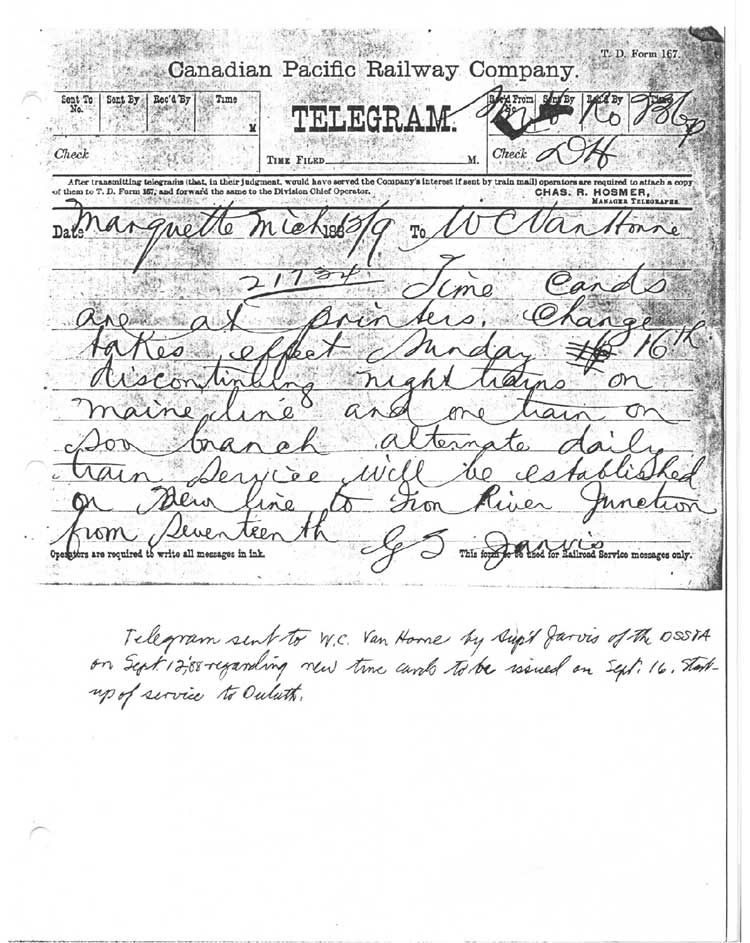 T. D. Form 167.
Canadian Pacific Railway Company.
Sent To No. Sent By Rec'd By Time M
TELEGRAM.
Rec'd From No. Sent By Rec'd By Time
Check
TIME FILED M.
Check DH
After transmitting telegrams (that, in their judgment, would have served the Company's interest if sent by train mail) operators are required to attach a copy
of them to T. D. Form 167, and forward the same to the Division Chief Operator.
CHAS. R. HOSMER,
MANAGER TELEGRAPHS.
Date Marquette Mich 188 To W C Van Horne
21734 Time Cards
are at printers. Change
takes effect Sunday 16th
discontinuing night trains on
Maine line and one train on
Soo branch alternate daily
train service will be established
on New line to Iron River Junction
from Seventeenth
G S Jarvis
Operators are required to write all messages in ink.
This form to be used for Railroad Service messages only.
Telegram sent to W.C. Van Horne by Sup't Jarvis of the DSS&A
on Sept. 12, '88 regarding new time cards to be issued on Sept. 16. Start-
up of service to Duluth.